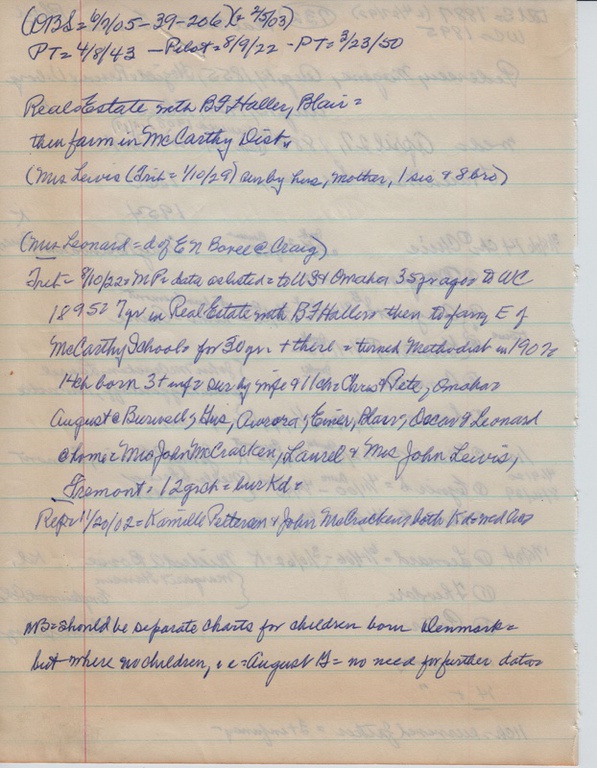 (OBS = 6/7/05-39-206) (+ 2/5/03)
PT = 4/8/43 - Pilot = 8/9/22 - PT = 3/23/50
Real Estate with BF Haller, Blair =
then farm in McCarthy Dist.
(Mrs Lewis (Trib = 1/10/29) sur by hus, mother, 1 sis & 8 bro)
(Mrs Leonard = d of E N @ Craig)
Trib = 8/10/22 = MP = data as listed = to US & Omaha 35 yr ago = to WC
1895 = 7 yr in Real Estate with BF Haller = then to farm E of
McCarthy School = for 30 yr + there = turned Methodist in 1907 =
14 ch born 3 + inf = sur by wife & 11 ch = Chris & Pete, Omaha =
August @ Burwell, Gus, Aurora, Emer, Blair, Oscar & Leonard
@ home = Mrs John McCracken, Laurel & Mrs John Lewis,
Fremont = 12 grch = bur Kd =
Repr 11/20/02 = Kamille Petterson & John McCracken, both Kd = wed
NB = should be separate charts for children born Denmark =
but where no children, i e = August G = no need for further data =